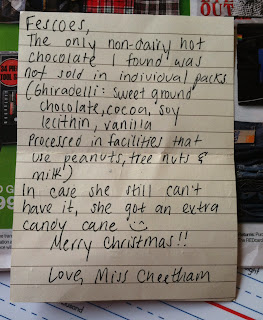 Fescoes,
The only non-dairy hot
chocolate I found was
not sold in indiviual packs
(Ghiradelli: sweet ground
chocolate, cocoa, soy
lecithin, vanilla
Processed in facilities that
use peanuts, tree nuts &
milk)
In case she still can't
have it, she got an extra
candy cane
Merry Christmas!!
Love, Miss Cheetham
OUT